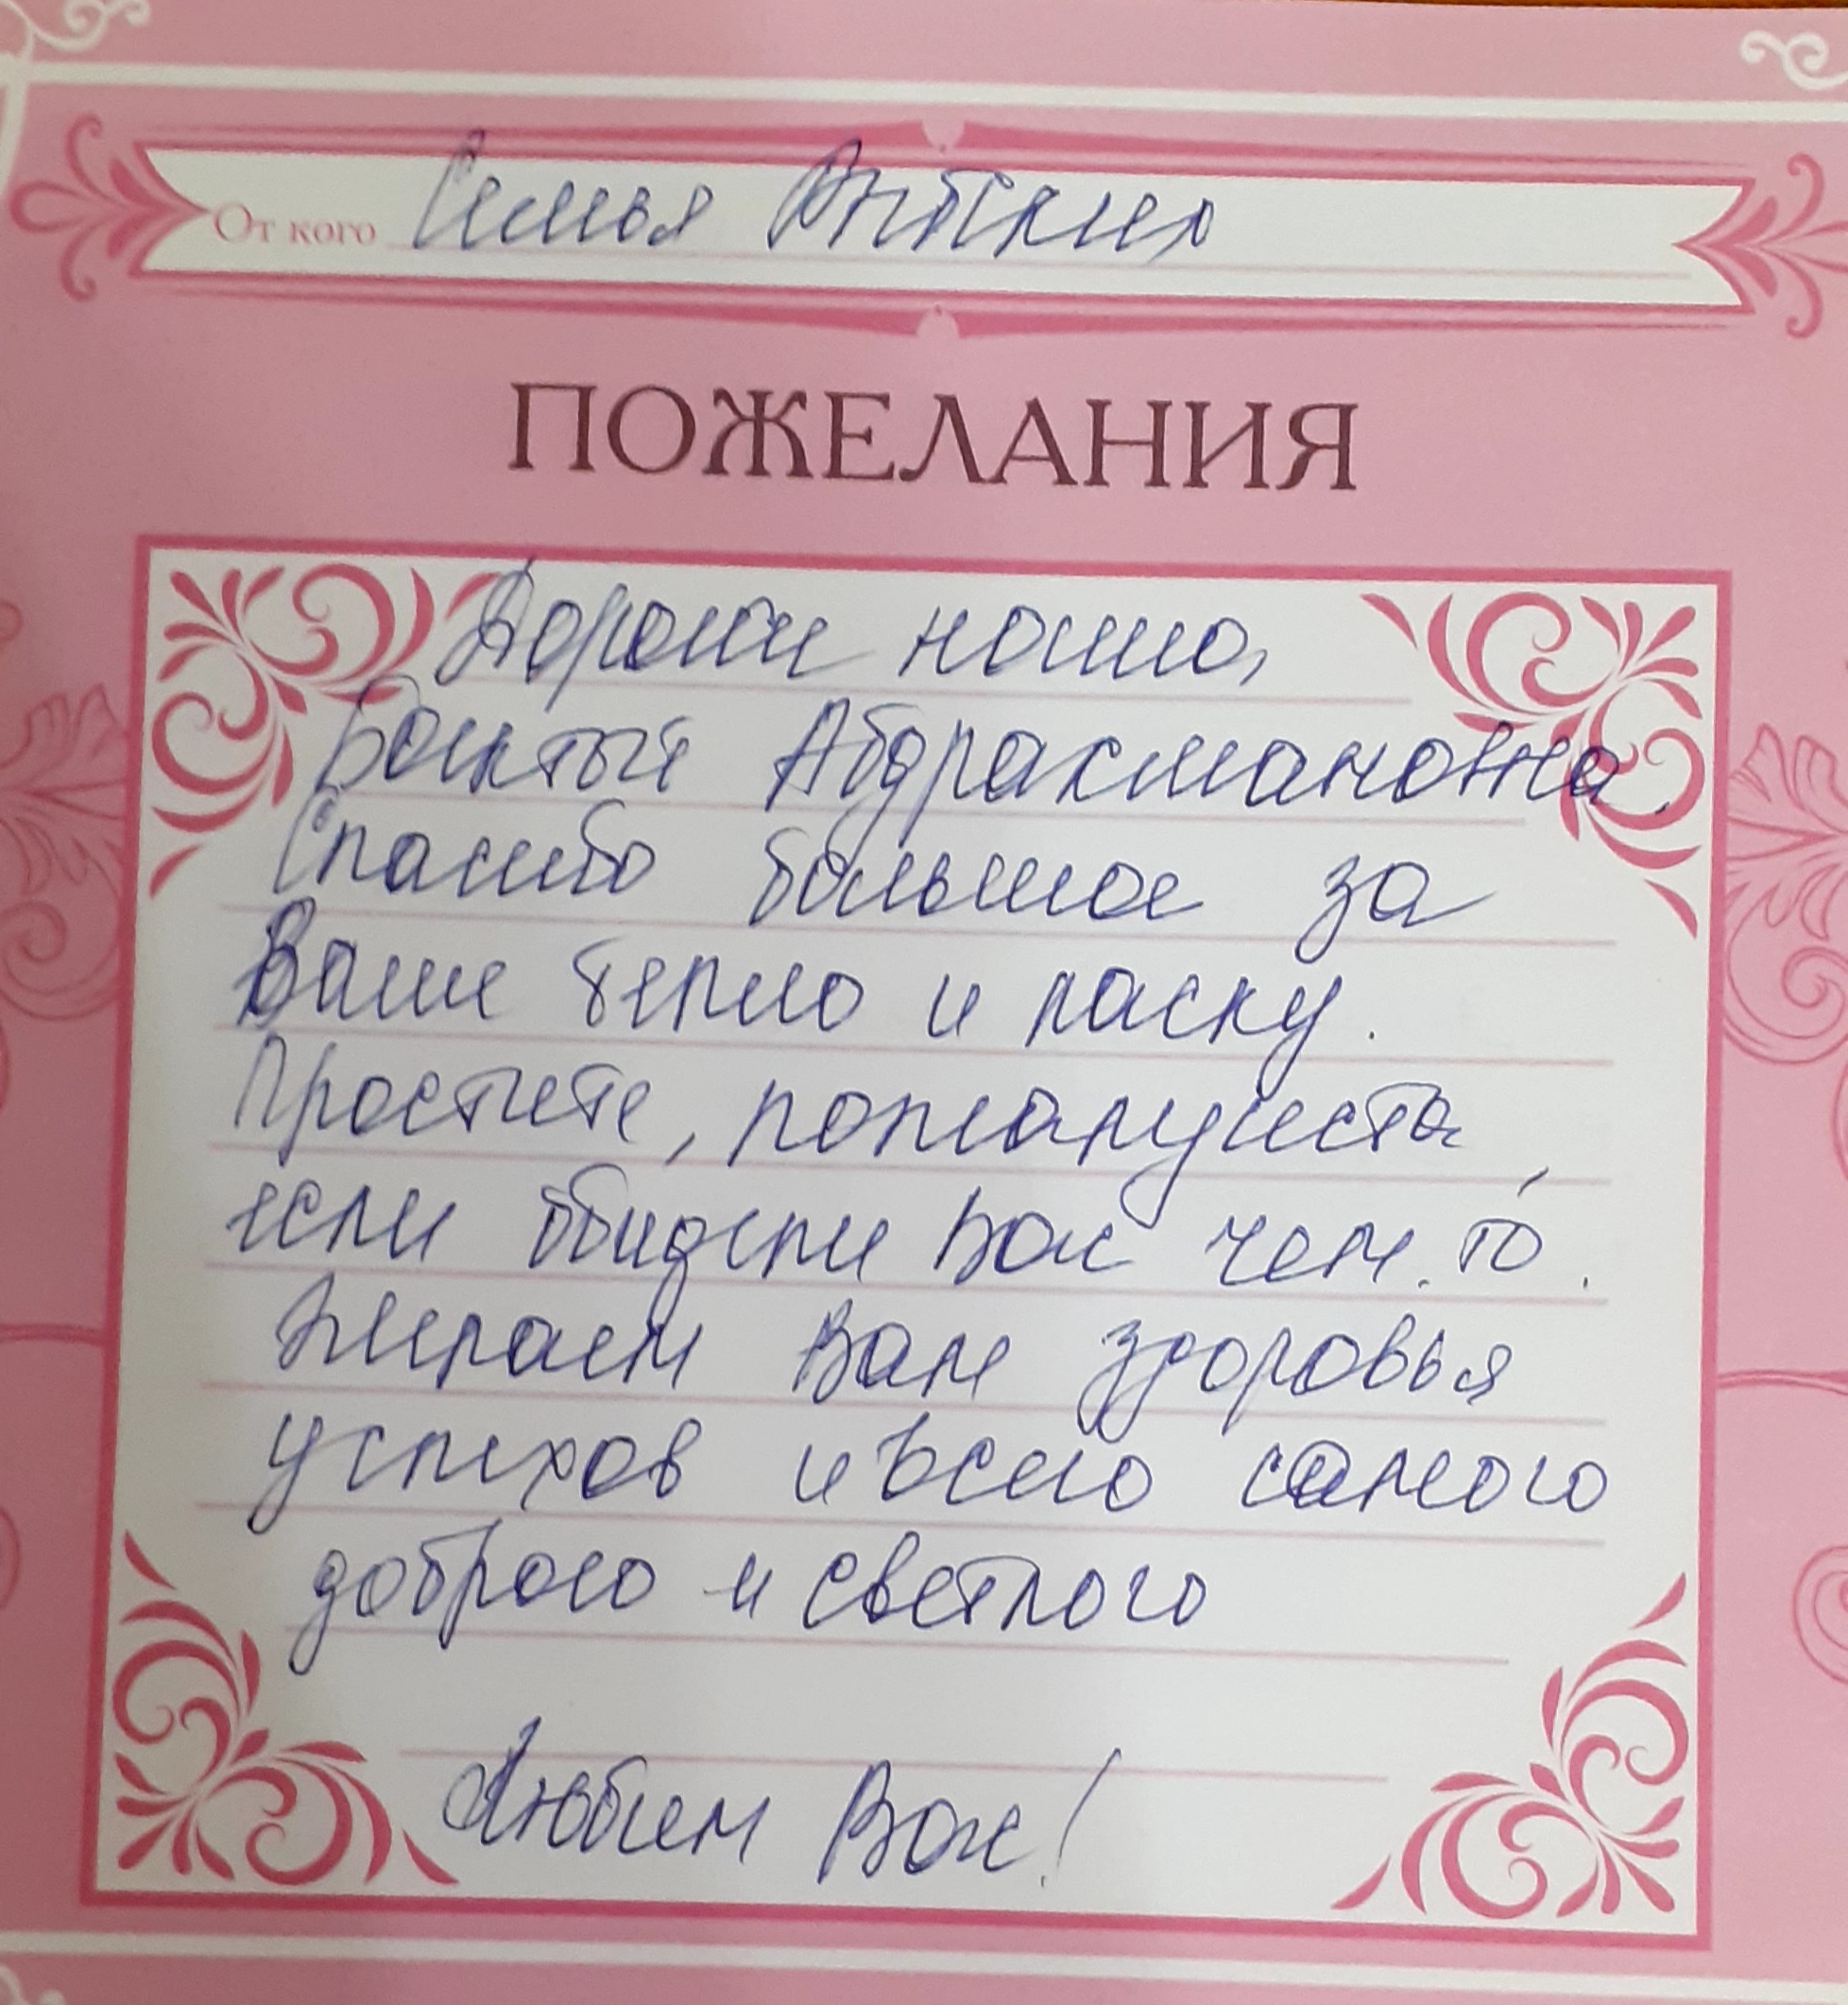 От кого Семья Антекин
ПОЖЕЛАНИЯ
Дорогая наша,
Бактый Абдрахмановна.
Спасибо большое за
Ваше тепло и ласку.
Простите, пожалуйста,
если обидели Вас чем-то.
Желаем Вам здоровья
успехов и всего самого
доброго и светлого
Любим Вас!